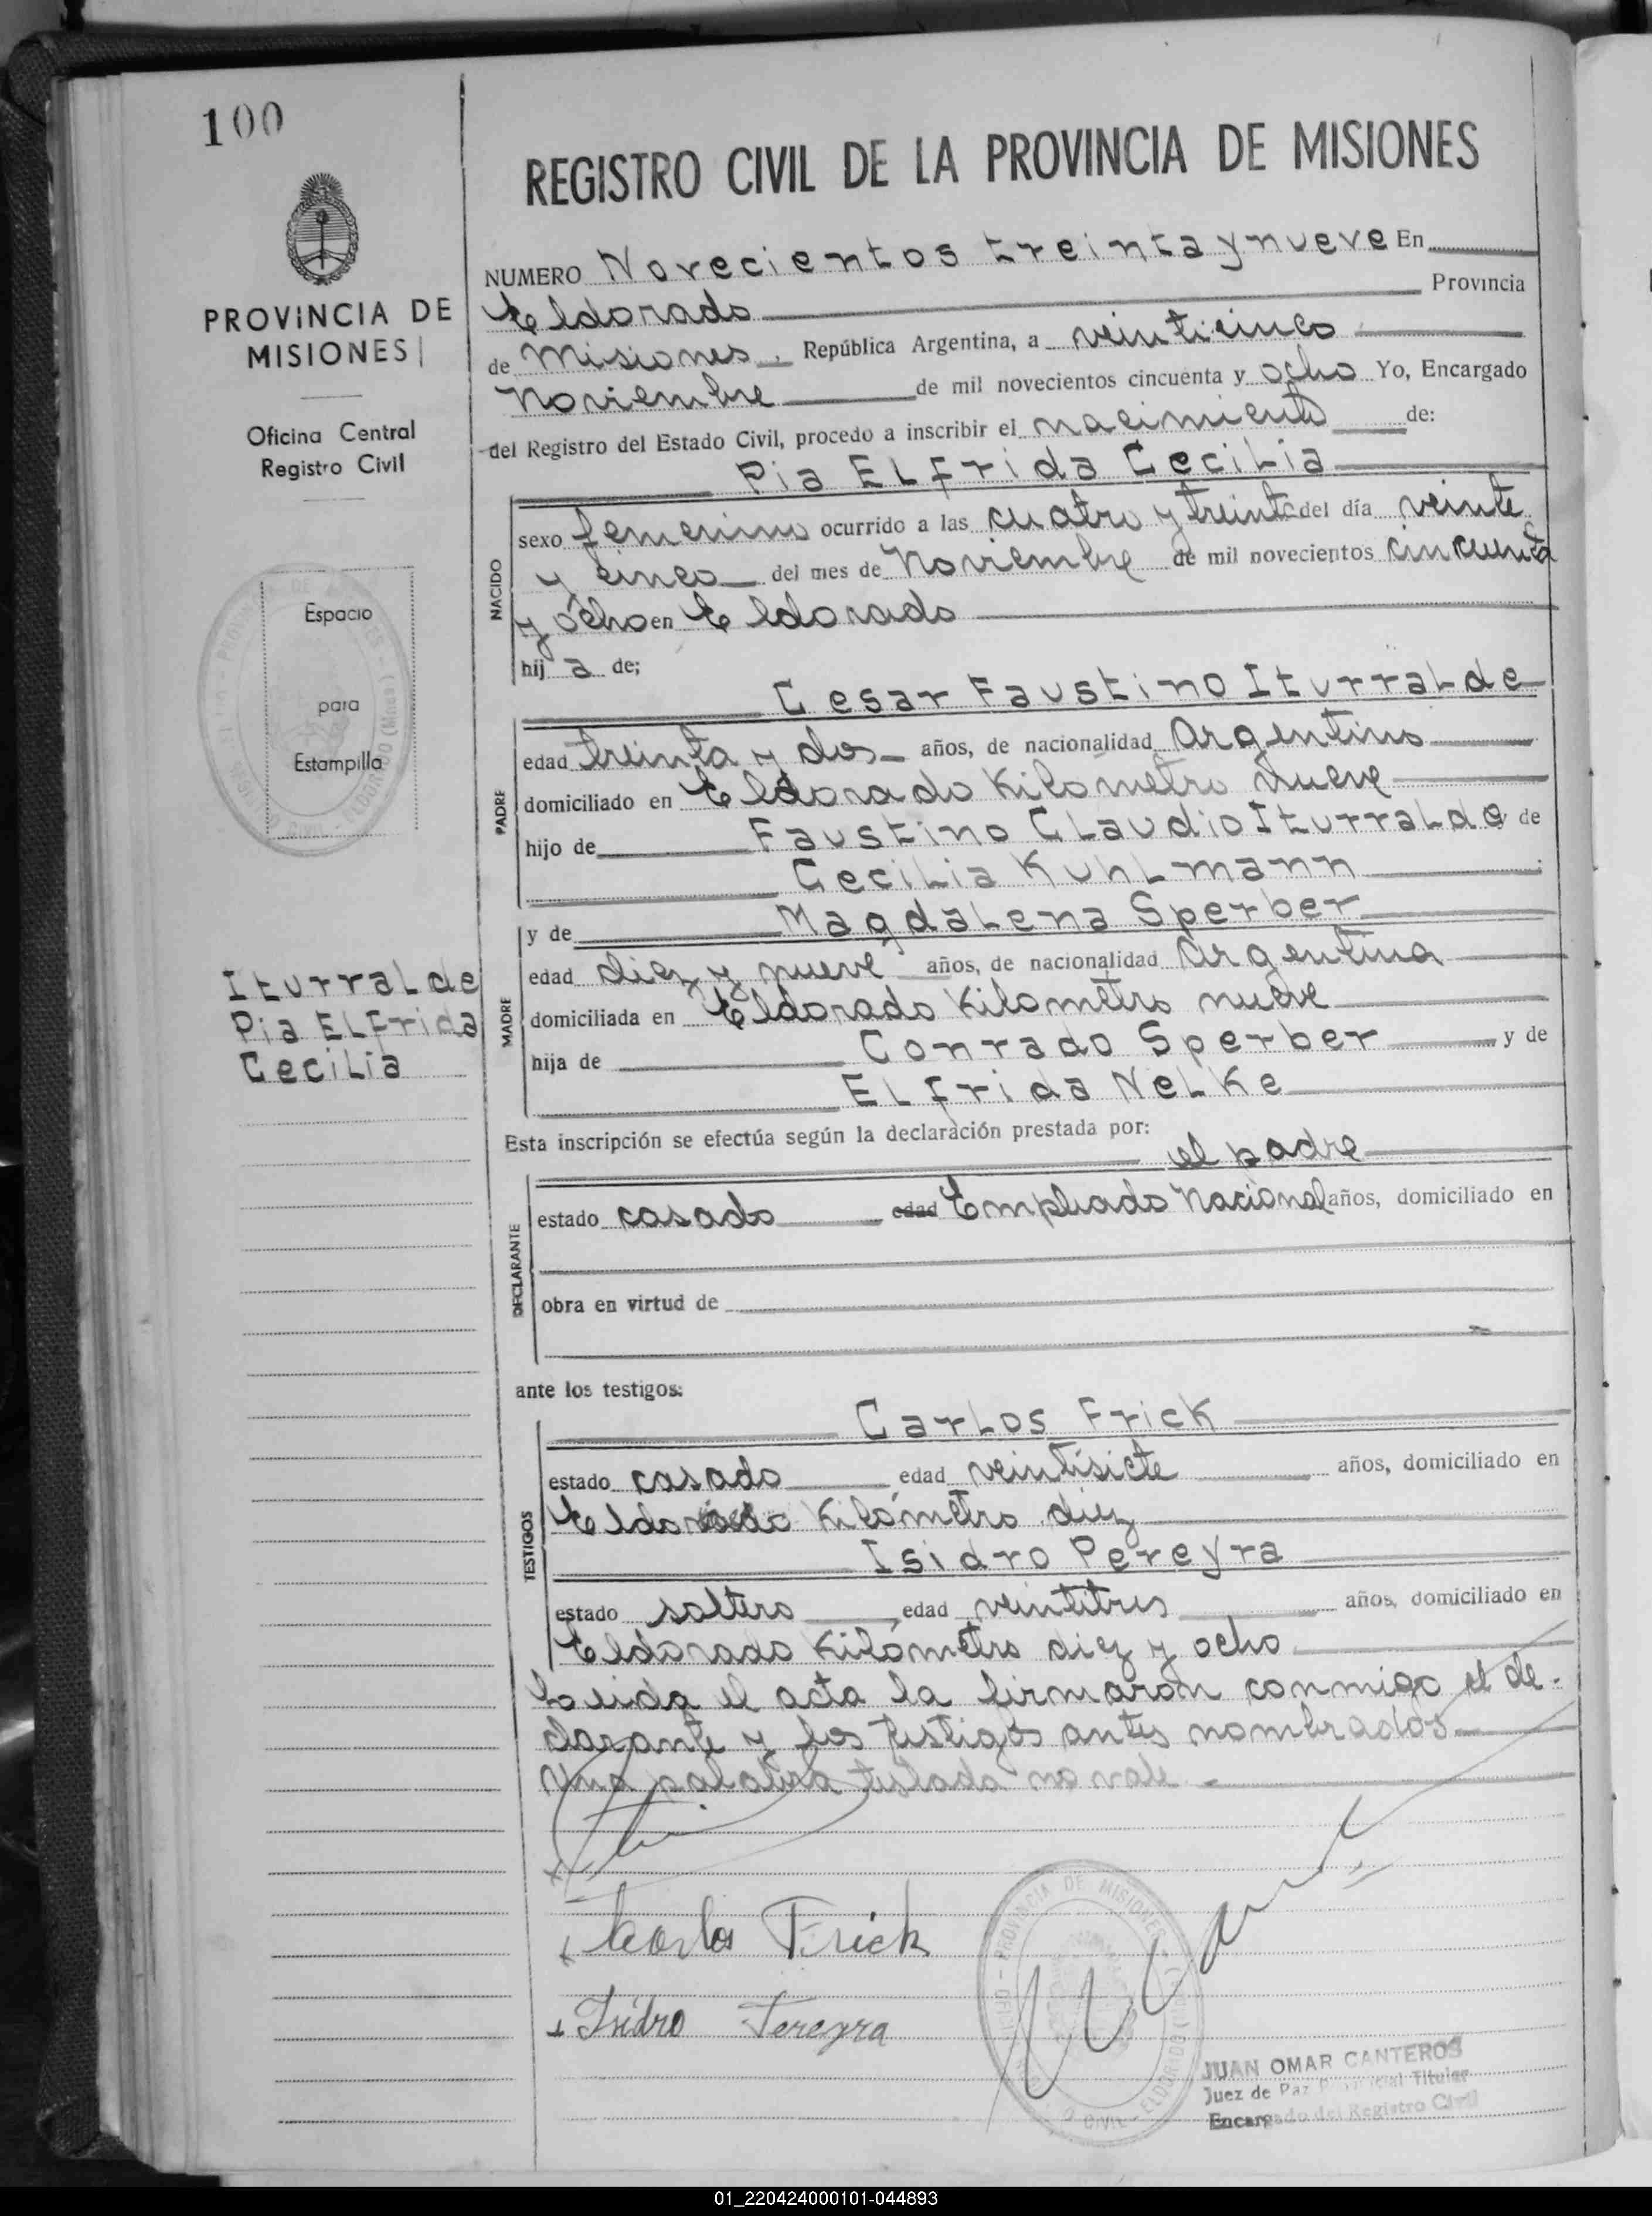 100
PROVINCIA DE
MISIONES
Oficina Central
Registro Civil
Espacio
para
Estampilla
Iturralde
Pia Elfrida
Cecilia
REGISTRO CIVIL DE LA PROVINCIA DE MISIONES
NUMERO Novecientos treinta y nueve En
Eldorado Provincia
de Misiones, República Argentina, a veinticinco
Noviembre de mil novecientos cincuenta y ocho Yo, Encargado
del Registro del Estado Civil, procedo a inscribir el nacimiento de:
Pia Elfrida Cecilia
NACIDO
sexo femenino ocurrido a las cuatro y treinta del día veinte
y cinco del mes de Noviembre de mil novecientos cincuenta
y ocho en Eldorado
hij a de;
Cesar Faustino Iturralde
PADRE
edad treinta y dos años, de nacionalidad Argentino
domiciliado en Eldorado Kilometro nueve
hijo de Faustino Claudio Iturralde y de
Cecilia Kuhlmann
y de Magdalena Sperber
MADRE
edad diez y nueve años, de nacionalidad Argentina
domiciliada en Eldorado Kilometro nueve
hija de Conrado Sperber y de
Elfrida Nelke
Esta inscripción se efectúa según la declaración prestada por:
el padre
DECLARANTE
estado casado edad Empleado Nacional años, domiciliado en
obra en virtud de
ante los testigos:
Carlos Frick
TESTIGOS
estado casado edad veintisiete años, domiciliado en
Eldorado Kilómetro diez
Isidro Pereyra
estado soltero edad veintitres años, domiciliado en
Eldorado Kilómetro diez y ocho
Leida el acta la firmaron conmigo el de-
clarante y los testigos antes nombrados
Una palabra testada no vale.
Carlos Frick
Isidro Pereyra
PROVINCIA DE MISIONES
JUAN OMAR CANTEROS
Juez de Paz Provincial Titular
Encargado del Registro Civil
01_220424000101-044893